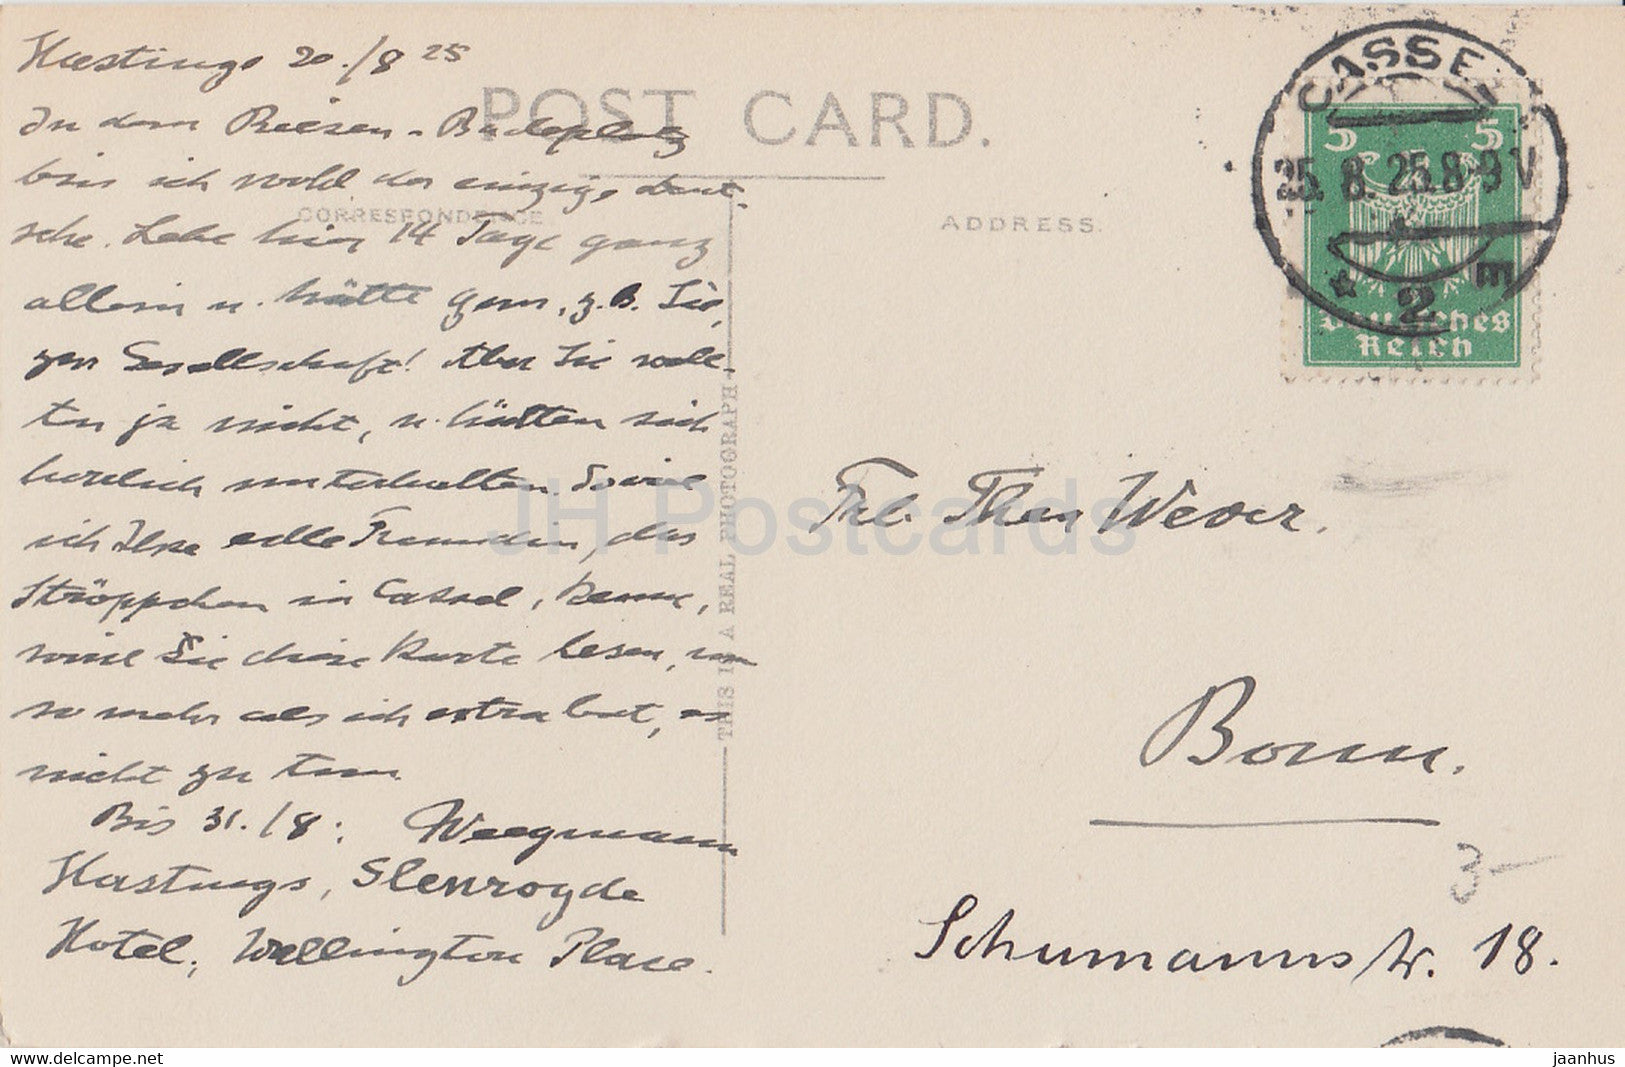 Hastings 20./8 25
POST CARD.
In dem Riesen-Badeplatz
bin ich wohl der einzige Deut-
CORRESPONDENCE
ADDRESS.
sche. Lebe hier 14 Tage ganz
allein u. hätte gern, z.B. Sie,
zur Gesellschaft! Aber Sie woll-
ten ja nicht, u. hätten sich
herzlich unterhalten. Soviel
ich Ihre edle Freundin, das
Ströppchen in Cassel, kenne,
wird Sie diese Karte lesen, um
so mehr als ich extra bat, es
nicht zu tun.
Bis 31./8: Weegmann
Hastings, Glenroyde
Hotel, Wellington Place.
THIS IS A REAL PHOTOGRAPH
CASSEL
25.8.25.8-9V
* 2 E
5 5
Deutsches
Reich
Frl. Thea Wever.
Bonn.
3-
Schumannstr. 18.
JH Postcards
www.delcampe.net
jaanhus